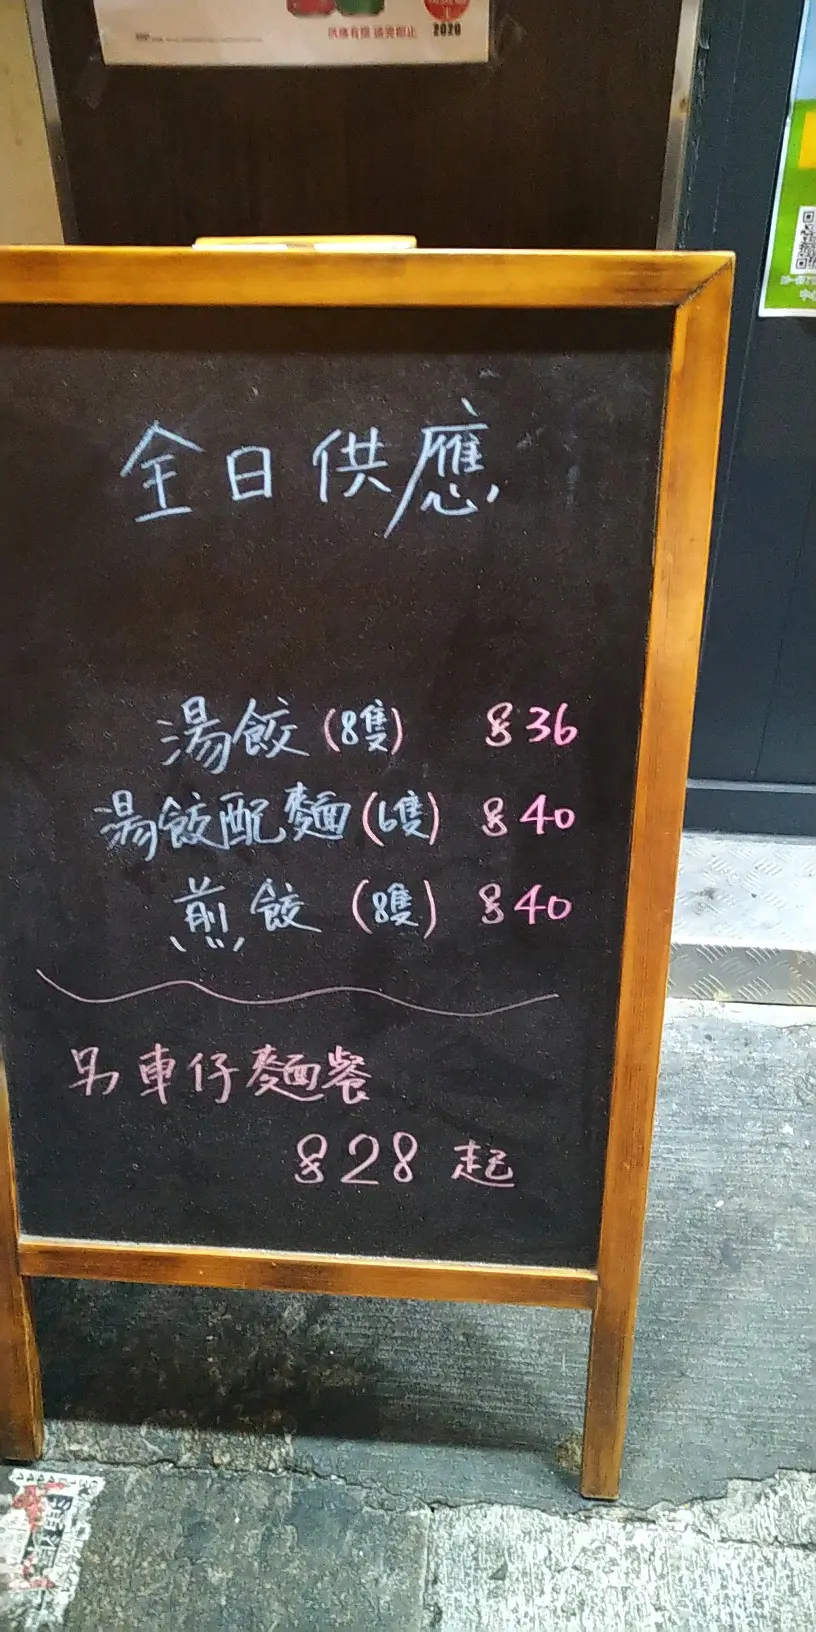 供應有限 送完即止
2020
全日供應
湯餃(8隻) $36
湯餃配麵(6隻) $40
煎餃(8隻) $40
另車仔麵餐
$28 起